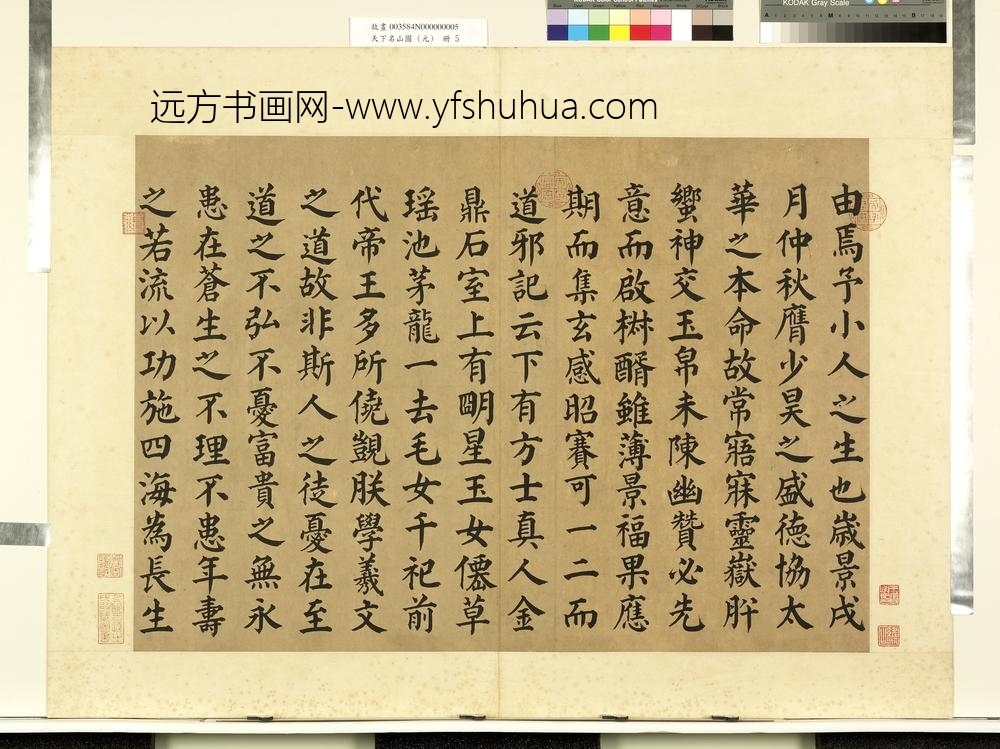 故畫 003584N000000005
天下名山圖（元） 冊 5
KODAK Gray Scale
远方书画网-www.yfshuhua.com
由焉予小人之生也歲景戌
月仲秋膺少昊之盛德協太
華之本命故常寤寐靈嶽肸
蠁神交玉帛未陳幽贊必先
意而啟椒醑雖薄景福果應
期而集玄感昭賽可一二而
道邪記云下有方士真人金
鼎石室上有明星玉女僊草
瑤池茅龍一去毛女千祀前
代帝王多所僥覬朕學羲文
之道故非斯人之徒憂在至
道之不弘不憂富貴之無永
患在蒼生之不理不患年壽
之若流以功施四海為長生